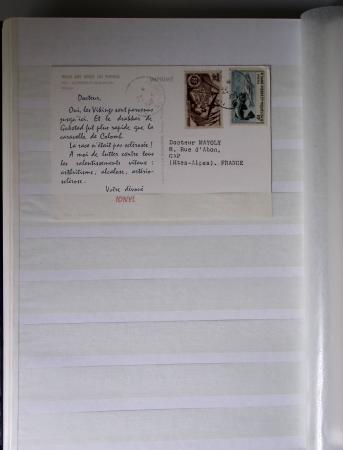 IMPRIMÉ
Docteur,
Oui, les Vikings sont parvenus
jusqu'ici. Et le drakkar de
Gokstad fut plus rapide que la
caravelle de Colomb.
La race n'était pas sclérosée !
A moi de lutter contre tous
les ralentissements vitaux :
arthritisme, alcalose, artério-
sclérose.
Votre dévoué
IONYL
Docteur MAYOLY
8, Rue d'Abon,
GAP
(Htes-Alpes). FRANCE